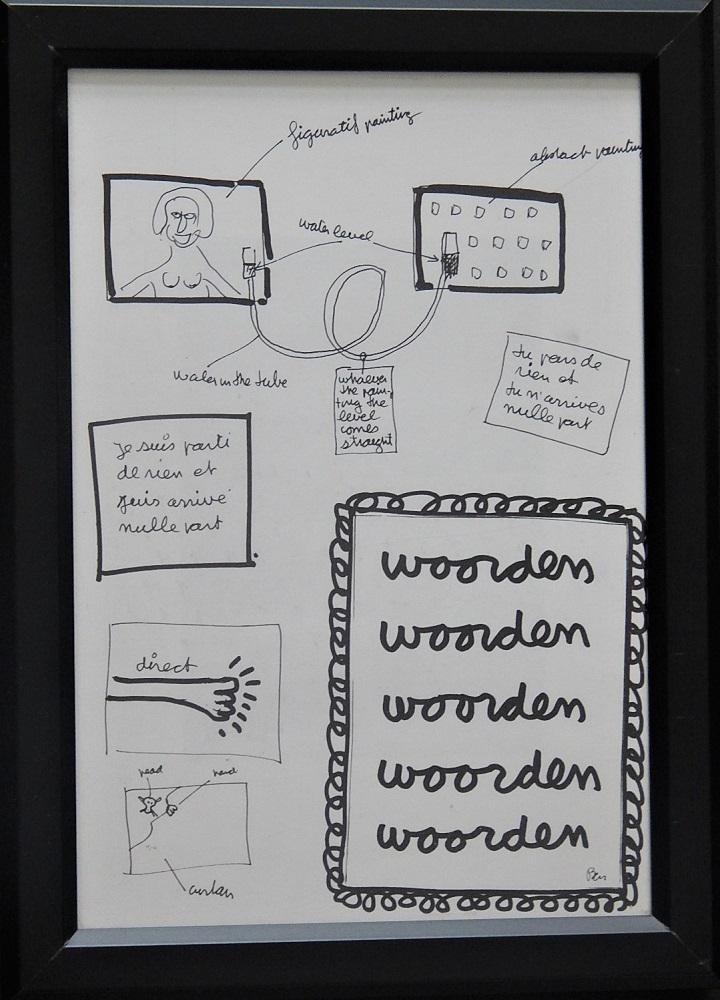 figuratif painting
abstract painting
water level
water in the tube
whatever
the pain-
ting the
level
comes
straight
tu pars de
rien et
tu n'arrives
nulle part
je suis parti
de rien et
suis arrivé
nulle part
woorden
woorden
woorden
woorden
woorden
Ben
direct
head
hand